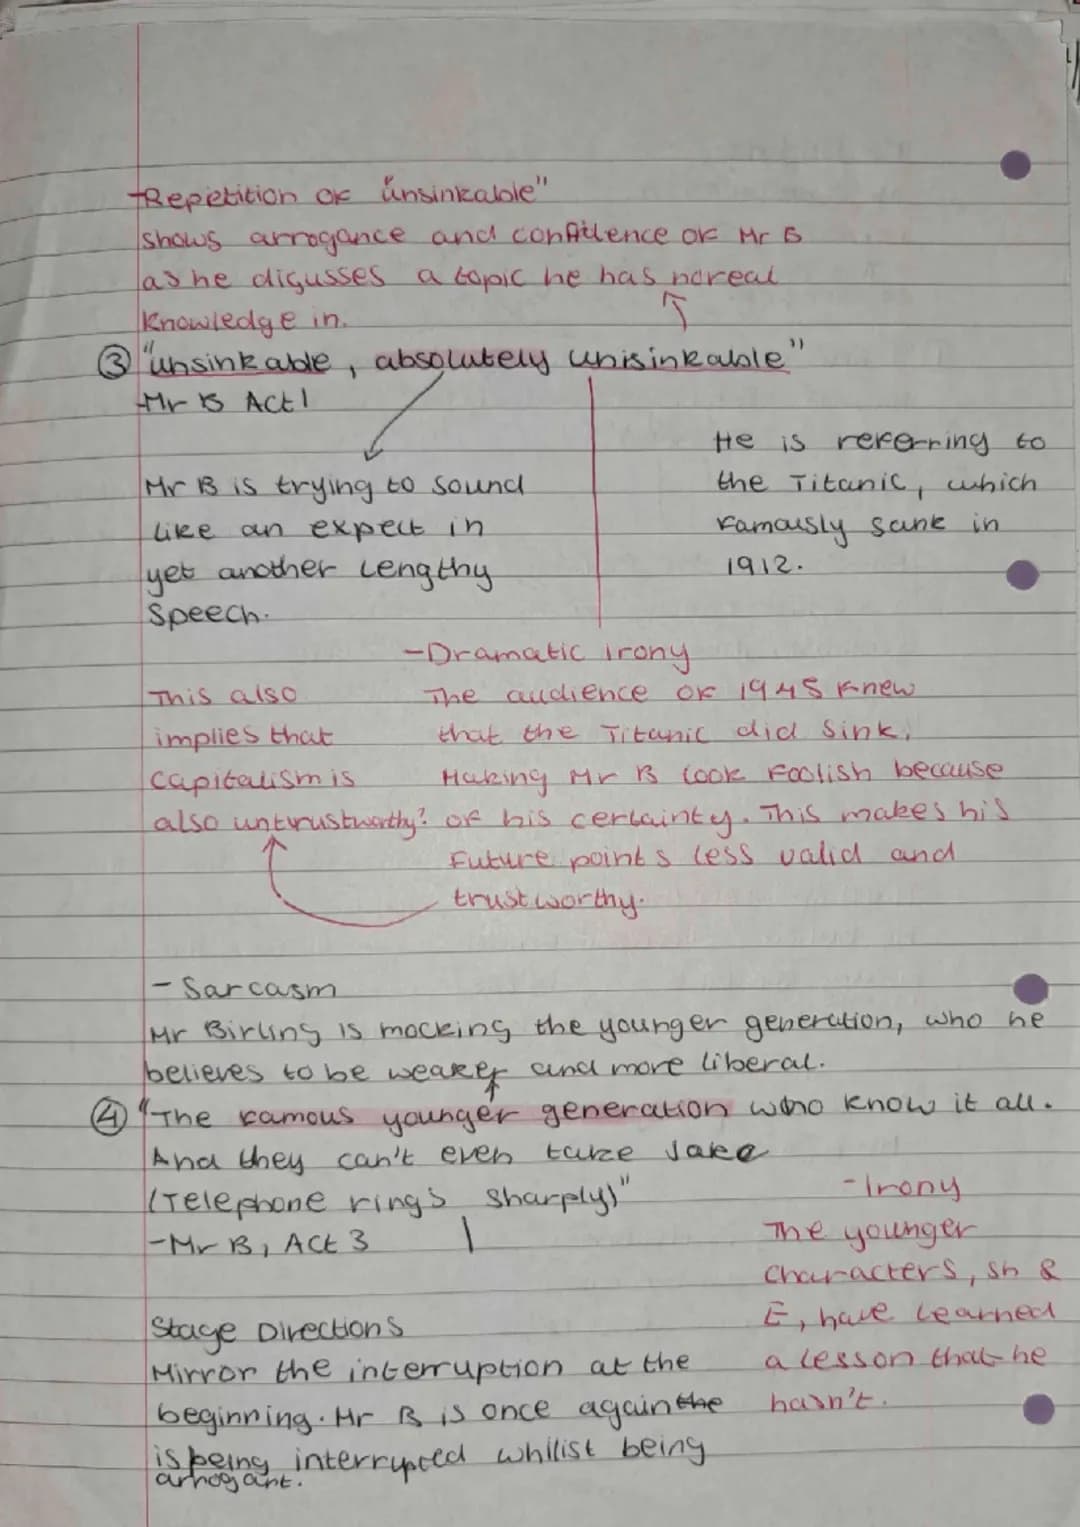 -Repetition of "unsinkable"
shows arrogance and confidence of Mr B
as he digusses a topic he has no real
knowledge in.
③ "unsinkable, absolutely unisinkable"
-Mr B Act 1
He is referring to
the Titanic, which
famously sank in
1912.
Mr B is trying to sound
like an expect in
yet another lengthy
speech.
-Dramatic irony
The audience of 1945 knew
that the Titanic did sink,
Making Mr B look foolish because
of his certainty. This makes his
future points less valid and
trustworthy.
This also
implies that
capitalism is
also untrustworthy?
- Sarcasm
Mr Birling is mocking the younger generation, who he
believes to be weaker and more liberal.
④ "The famous younger generation who know it all.
And they can't even take
(Telephone rings sharply)"
-Mr B, Act 3
-Irony
The younger
characters, Sh &
E, have learned
a lesson that he
hasn't.
Stage Directions
Mirror the interruption at the
beginning. Mr B is once again the
is being interrupted whilist being
arrogant.